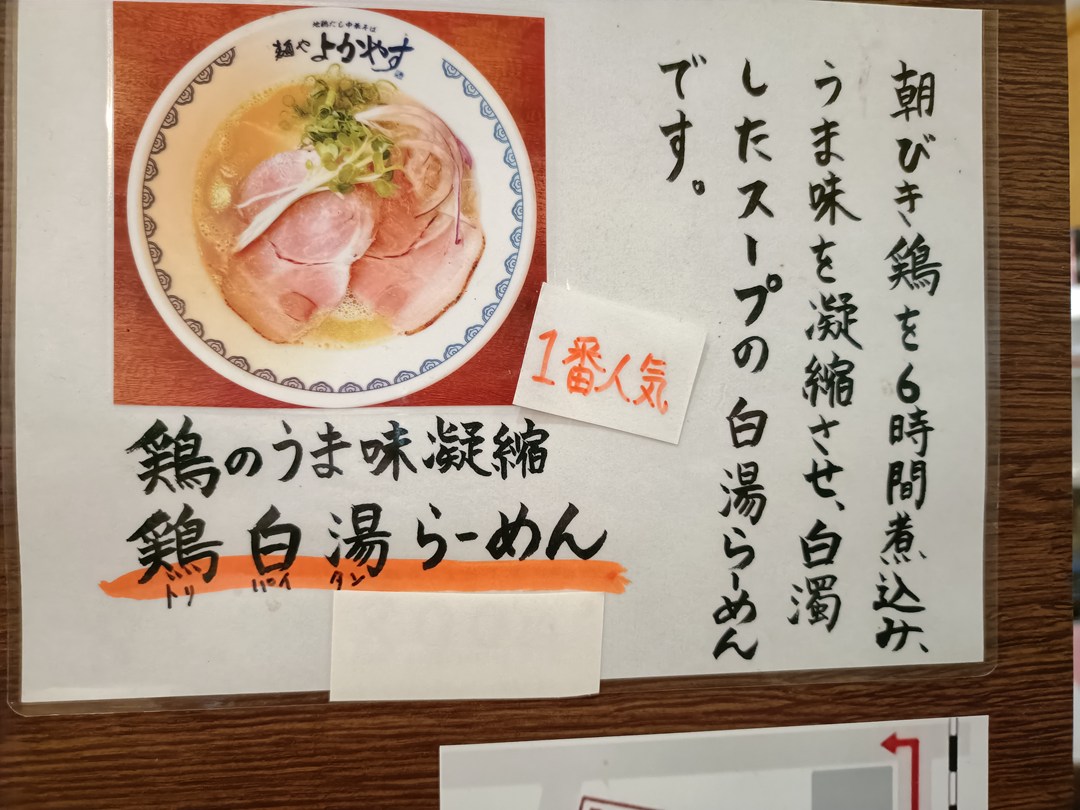 地鶏だし中華そば
麺や よかやす
朝びき鶏を6時間煮込み、
うま味を凝縮させ、白濁
したスープの白湯らーめん
です。
1番人気
鶏のうま味凝縮
鶏白湯らーめん
トリ パイ タン